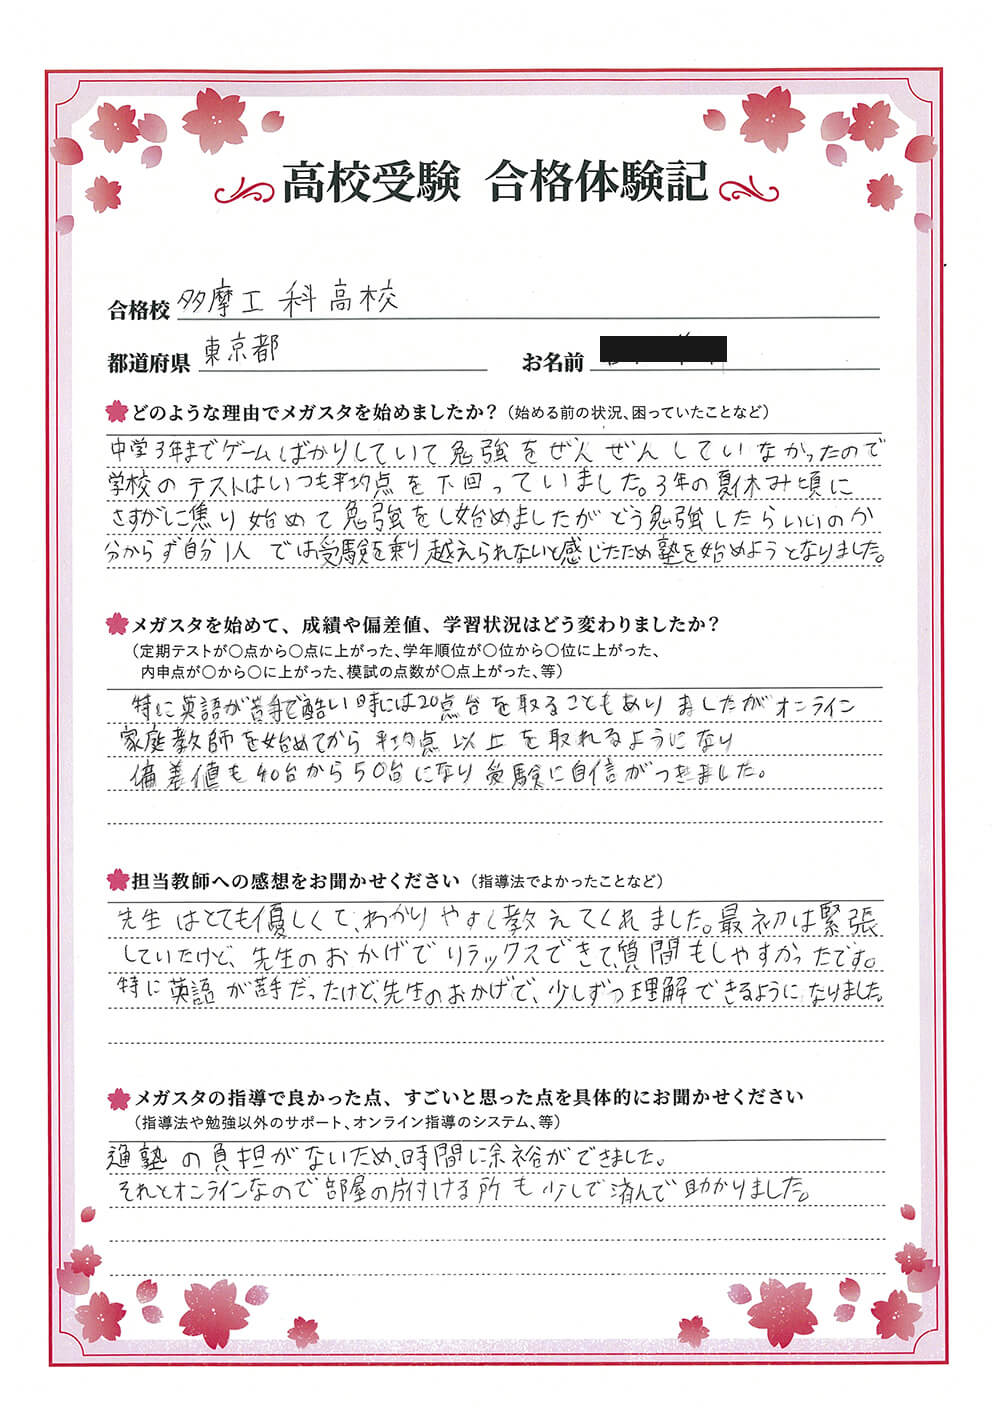 高校受験 合格体験記
合格校 多摩工科高校
都道府県 東京都 お名前
どのような理由でメガスタを始めましたか？（始める前の状況、困っていたことなど）
中学3年までゲームばかりしていて勉強をぜんぜんしていなかったので
学校のテストはいつも平均点を下回っていました。3年の夏休み頃に
さすがに焦り始めて勉強をし始めましたがどう勉強したらいいのか
分からず自分1人では受験を乗り越えられないと感じたため塾を始めようとなりました。
メガスタを始めて、成績や偏差値、学習状況はどう変わりましたか？
（定期テストが〇点から〇点に上がった、学年順位が〇位から〇位に上がった、
内申点が〇から〇に上がった、模試の点数が〇点上がった、等）
特に英語が苦手で酷い時には20点台を取ることもありましたがオンライン
家庭教師を始めてから平均点以上を取れるようになり
偏差値も40台から50台になり受験に自信がつきました。
担当教師への感想をお聞かせください（指導法でよかったことなど）
先生はとても優しくて、わかりやすく教えてくれました。最初は緊張
していたけど、先生のおかげでリラックスできて、質問もしやすかったです。
特に英語が苦手だったけど、先生のおかげで、少しずつ理解できるようになりました。
メガスタの指導で良かった点、すごいと思った点を具体的にお聞かせください
（指導法や勉強以外のサポート、オンライン指導のシステム、等）
通塾の負担がないため、時間に余裕ができました。
それとオンラインなので部屋の片付ける所も少しで済んで助かりました。